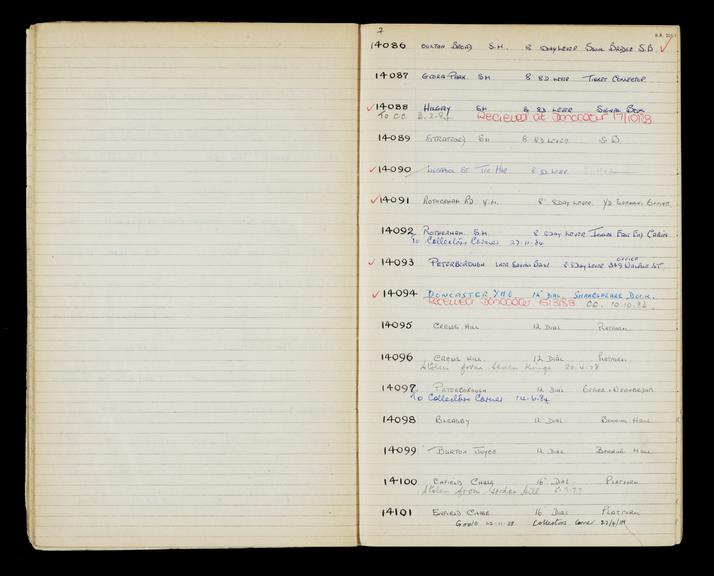 7
14086 OULTON BROAD S.H. 8" 8DAY LEVER SWING BRIDGE S.B.
14087 GIDEA PARK SH 8" 8D LEVER TICKET COLLECTOR
14088 HILGAY SH 8" 8D LEVER SIGNAL BOX
TO CC 2.2.84 Recieved at Doncaster 17/10/88
14089 STRATFORD SH 8" 8D LEVER S B
14090 LIVERPOOL ST 8" 8D LEVER
14091 ROTHERHAM RD Y.M. 8" 8DAY LEVER
14092 ROTHERHAM S.H. 8" 8DAY LEVER CABIN
To Collectors Corner 27-11-84
14093 PETERBOROUGH LATE 8" 8DAY LEVER OFFICE ST
14094 DONCASTER 12" DIAL
Received Doncaster C.C. 10.10.86
14095 CREWS HILL 12 DIAL PLATFORM
14096 CREWS HILL. 12 DIAL PLATFORM
Stolen from Seven Kings 20.4.78
14097 PETERBOROUGH 12 DIAL
To Collectors Corner 14.6.84
14098 BLEASBY 12" DIAL BOOKING HALL
14099 BURTON JOYCE 12 DIAL BOOKING HALL
14100 ENFIELD CHASE 16" DIAL PLATFORM
Stolen from Gordon Hill
14101 ENFIELD CHASE 16 DIAL PLATFORM
22-11-88 Collectors Corner